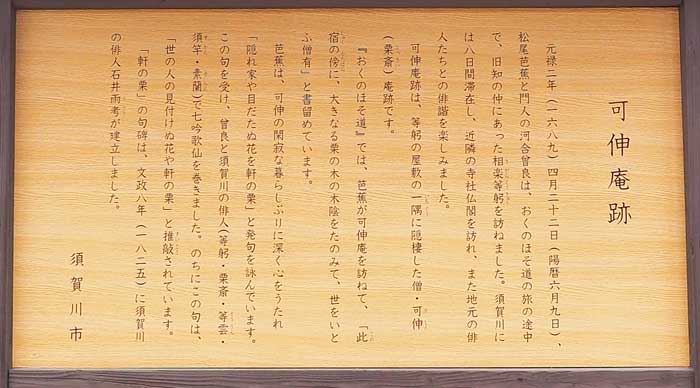 可伸庵跡
元禄二年(一六八九)四月二十二日(陽暦六月九日)、
松尾芭蕉と門人の河合曾良は、おくのほそ道の旅の途中
で、旧知の仲にあった相楽等躬を訪ねました。須賀川に
は八日間滞在し、近隣の寺社仏閣を訪れ、また地元の俳
人たちとの俳諧を楽しみました。
可伸庵跡は、等躬の屋敷の一隅に隠棲した僧・可伸
(栗斎)庵跡です。
『おくのほそ道』では、芭蕉が可伸庵を訪ねて、「此
宿の傍に、大きなる栗の木の木陰をたのみて、世をいと
ふ僧有」と書留めています。
芭蕉は、可伸の閑寂な暮らしぶりに深く心をうたれ
「隠れ家や目だたぬ花を軒の栗」と発句を詠んでいます。
この句を受け、曾良と須賀川の俳人(等躬・栗斎・等雲・
須竿・素蘭)で七吟歌仙を巻きました。のちにこの句は、
「世の人の見付けぬ花や軒の栗」と推敲されています。
「軒の栗」の句碑は、文政八年(一八二五)に須賀川
の俳人石井雨考が建立しました。
須賀川市